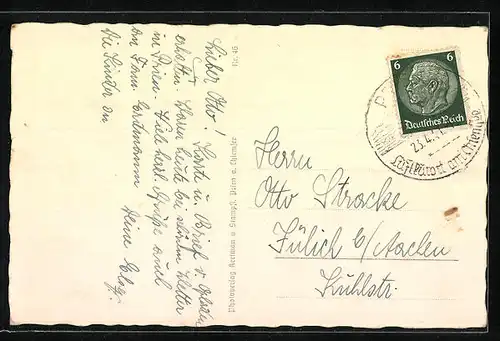 Lieber Otto!
Karte u. Brief v.
erhalten. Waren heute bei schönem Wetter
in Prien. Viele herzl. Grüße auch
an Fam. Erdmann
die Kinder
Deine
Nr. 46
Photoverlag Hartmann u. Stampfl, Prien a. Chiemsee
6 6
Deutsches Reich
Luftkurort am Chiemsee
Herrn
Otto Stracke
Jülich b/Aachen
Kühlstr.